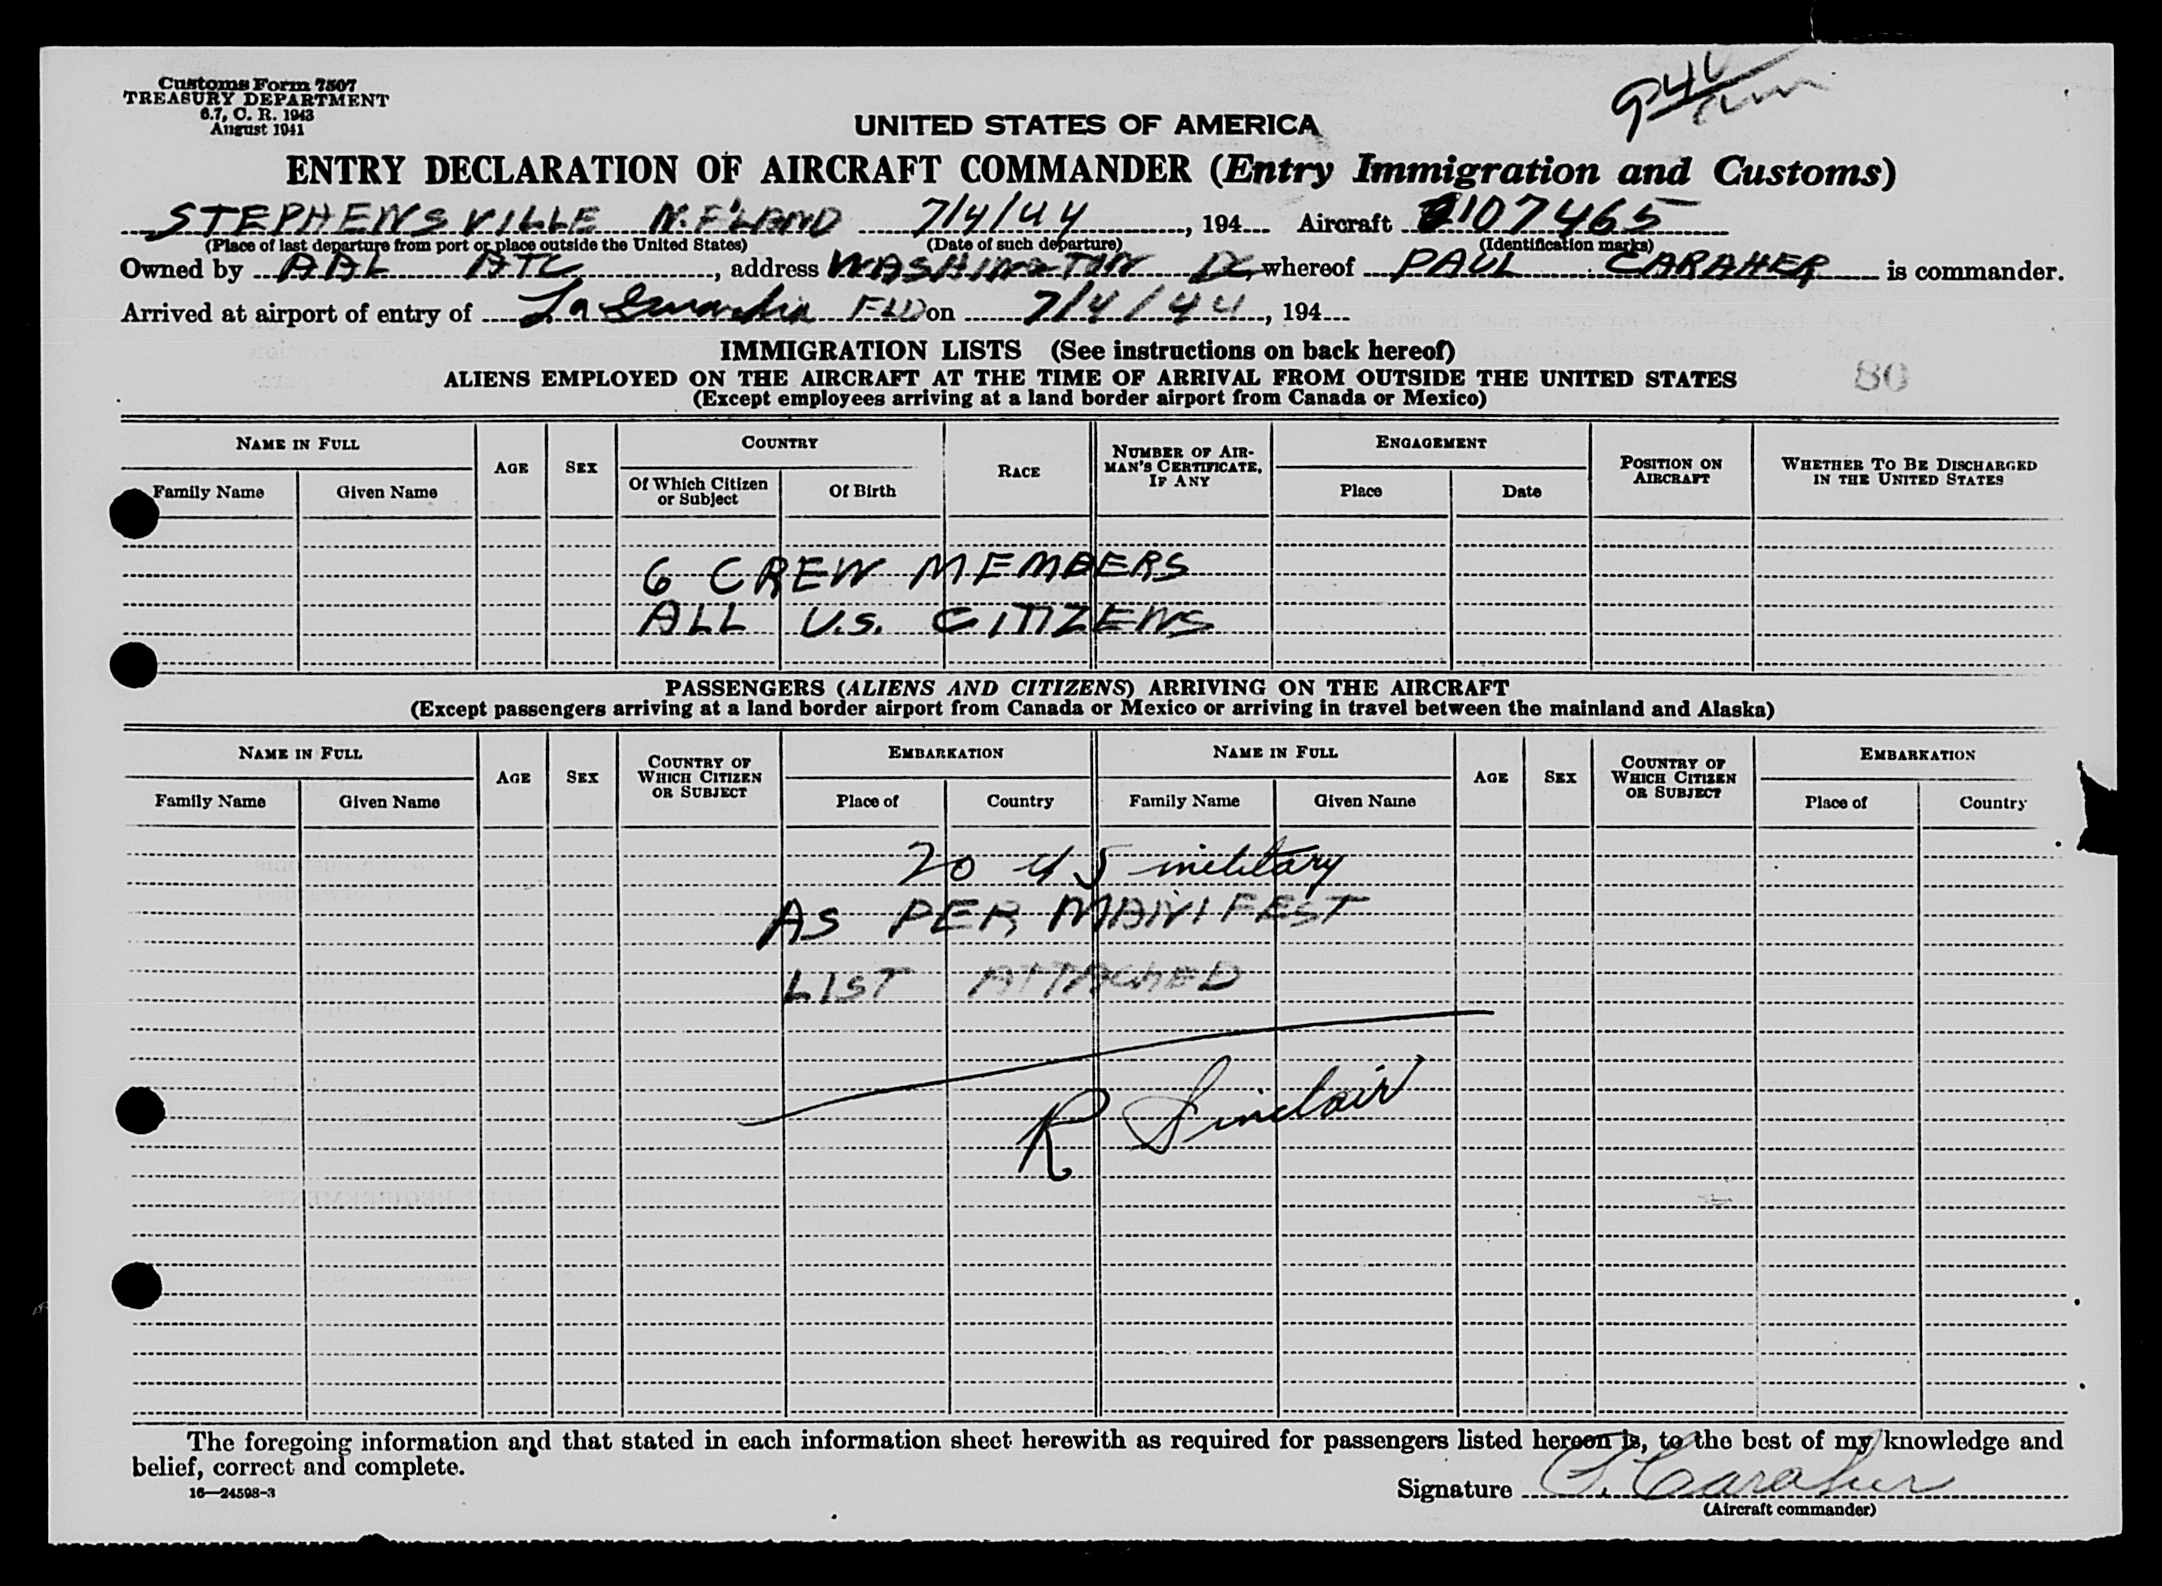 Customs Form 7507
TREASURY DEPARTMENT
6.7, C. R. 1943
August 1941
UNITED STATES OF AMERICA
ENTRY DECLARATION OF AIRCRAFT COMMANDER (Entry Immigration and Customs)
STEPHENSVILLE N.F'LAND 7/4/44, 194 Aircraft 107465
(Place of last departure from port or place outside the United States) (Date of such departure) (Identification marks)
Owned by AAL ATC, address WASHINGTON DC, whereof PAUL CARAHER is commander.
Arrived at airport of entry of La Guardia FLD on 7/4/44, 194
IMMIGRATION LISTS (See instructions on back hereof)
ALIENS EMPLOYED ON THE AIRCRAFT AT THE TIME OF ARRIVAL FROM OUTSIDE THE UNITED STATES 80
(Except employees arriving at a land border airport from Canada or Mexico)
NAME IN FULL AGE SEX COUNTRY RACE NUMBER OF AIRMAN'S CERTIFICATE, IF ANY ENGAGEMENT POSITION ON AIRCRAFT WHETHER TO BE DISCHARGED IN THE UNITED STATES
Family Name Given Name Of Which Citizen or Subject Of Birth Place Date
6 CREW MEMBERS
ALL U.S. CITIZENS
PASSENGERS (ALIENS AND CITIZENS) ARRIVING ON THE AIRCRAFT
(Except passengers arriving at a land border airport from Canada or Mexico or arriving in travel between the mainland and Alaska)
NAME IN FULL AGE SEX COUNTRY OF WHICH CITIZEN OR SUBJECT EMBARKATION NAME IN FULL AGE SEX COUNTRY OF WHICH CITIZEN OR SUBJECT EMBARKATION
Family Name Given Name Place of Country Family Name Given Name Place of Country
20 US military
AS PER MANIFEST
LIST ATTACHED
R Sinclair
The foregoing information and that stated in each information sheet herewith as required for passengers listed hereon is, to the best of my knowledge and
belief, correct and complete.
16—24598-3
Signature P. Caraher
(Aircraft commander)